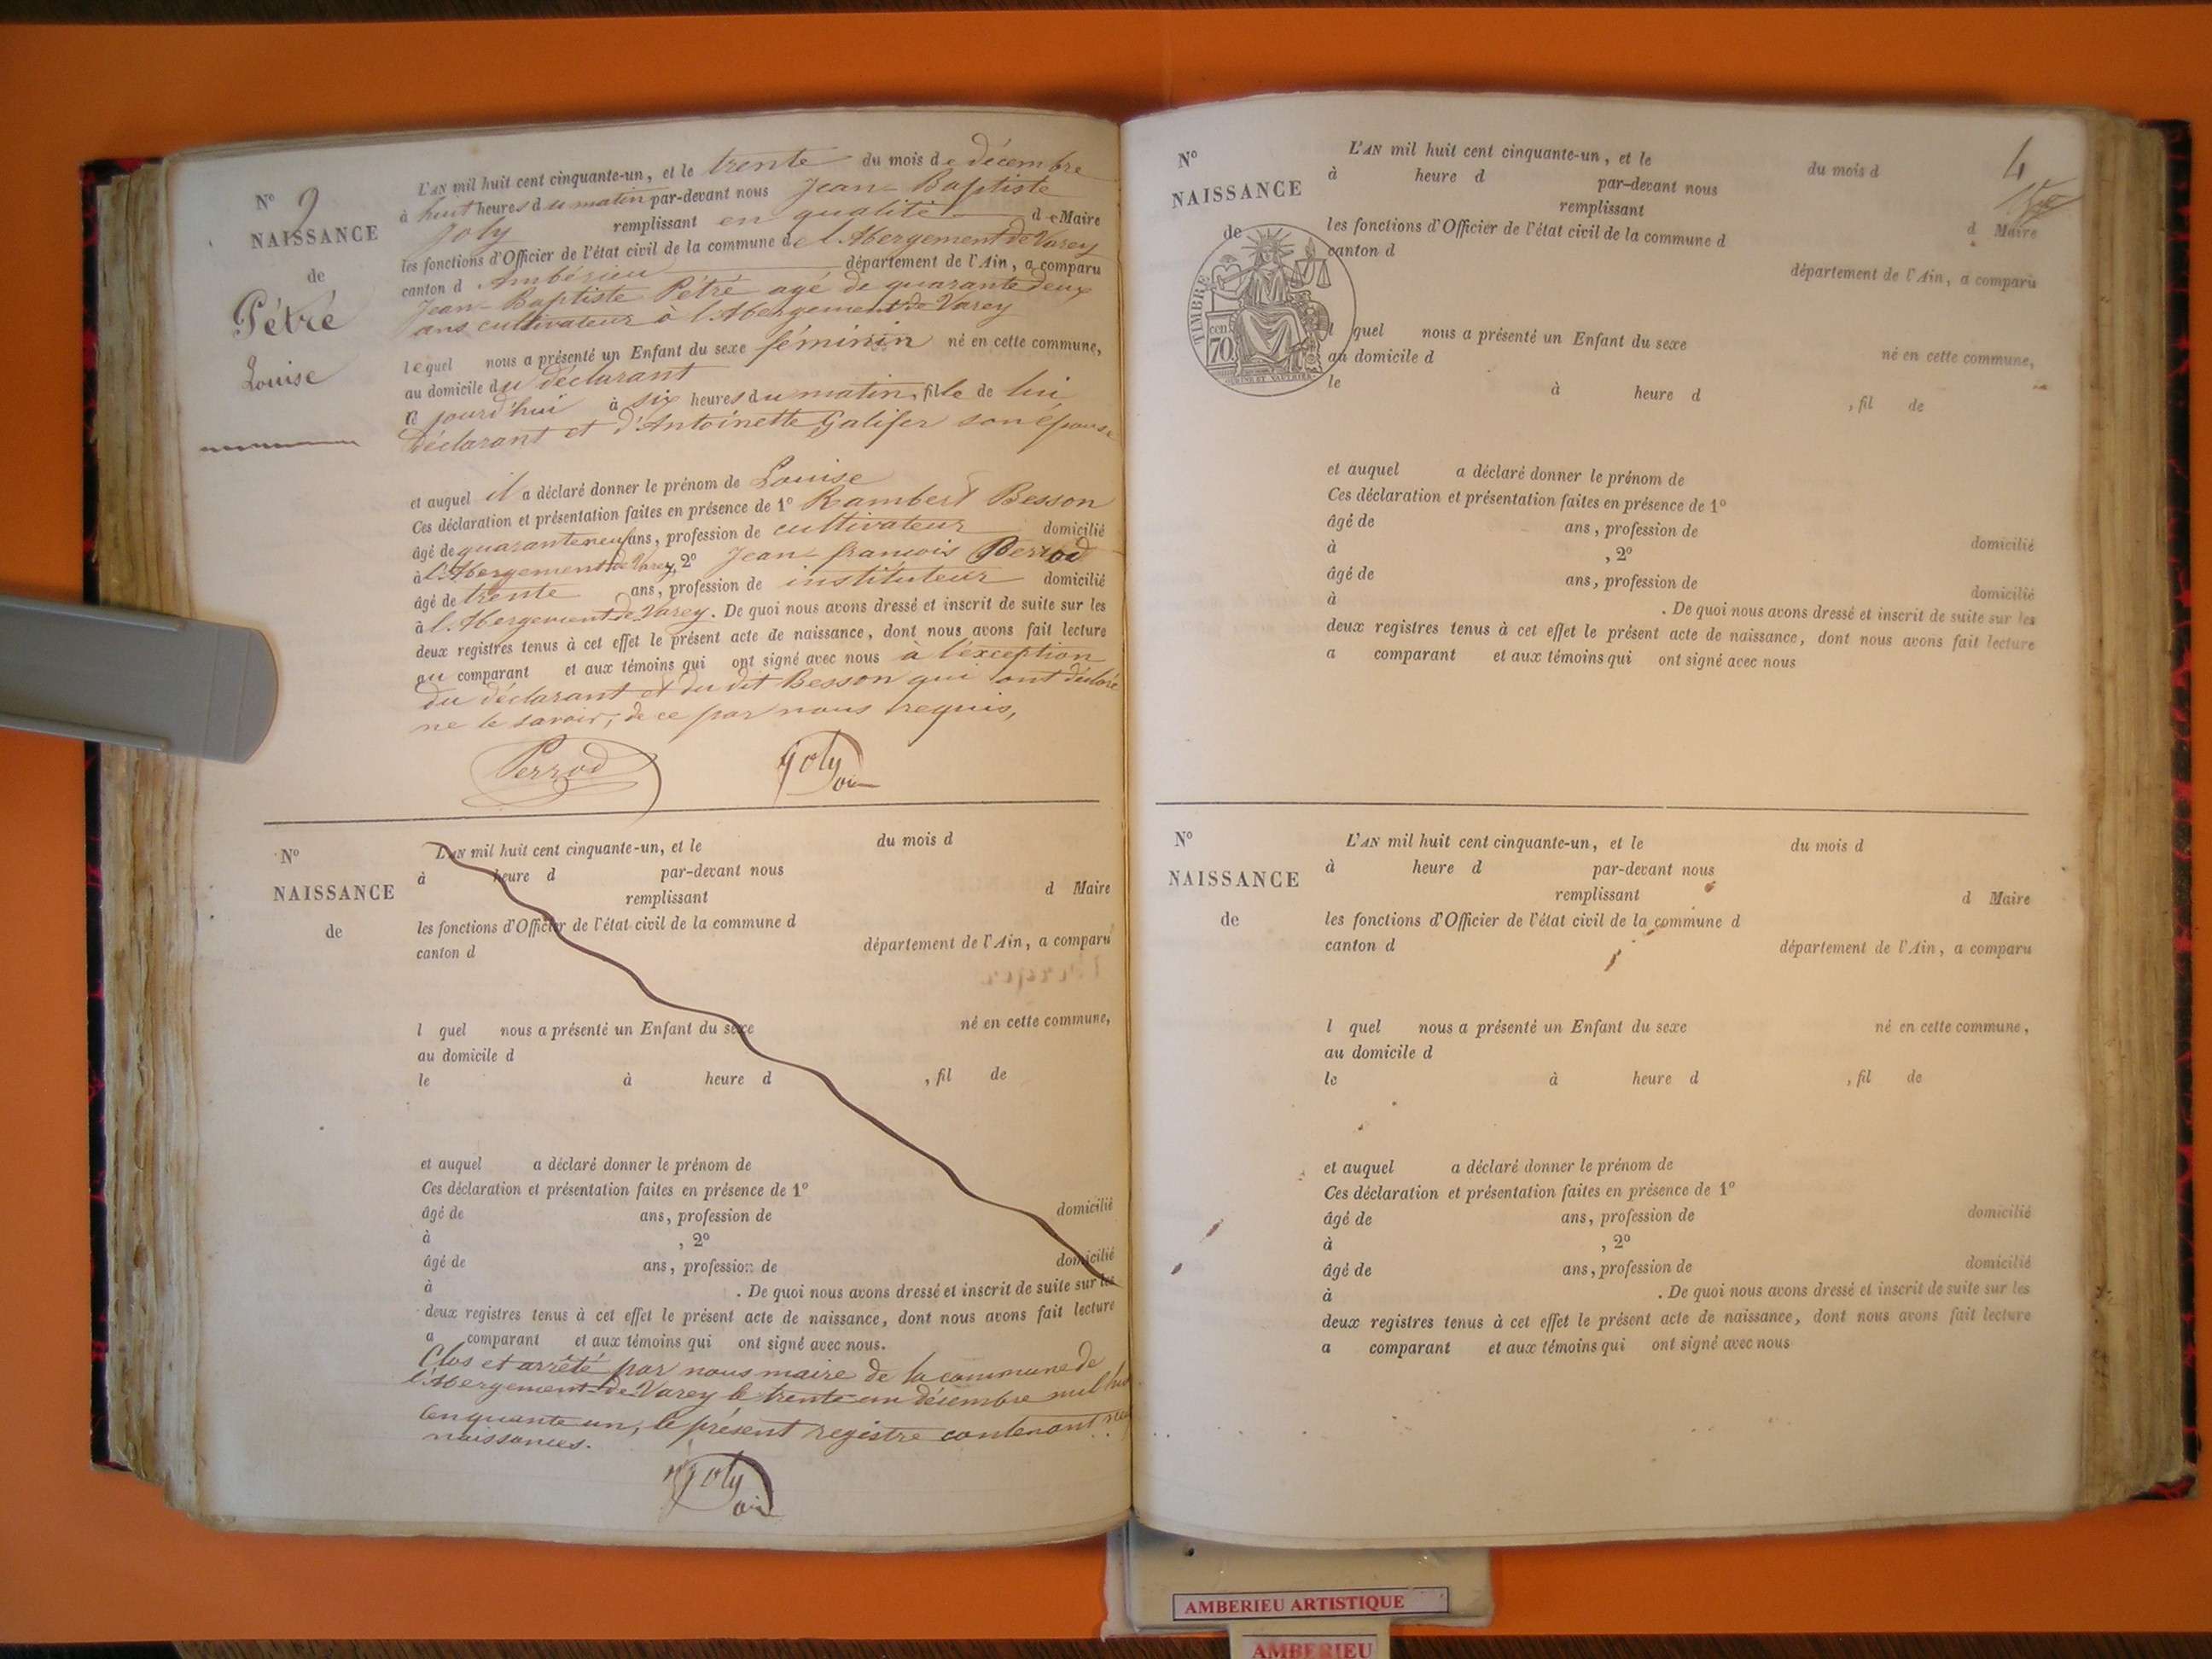 N° 9
NAISSANCE
de
Pétré
Louise
L'AN mil huit cent cinquante-un, et le trente du mois de décembre
à huit heures du matin par-devant nous Jean-Baptiste
Joly remplissant en qualité de Maire
les fonctions d'Officier de l'état civil de la commune de l'Abergement-de-Varey
canton d Ambérieu département de l'Ain, a comparu
Jean-Baptiste Pétré agé de quarante deux
ans cultivateur à l'Abergement-de-Varey
lequel nous a présenté un Enfant du sexe féminin né en cette commune,
au domicile du déclarant
jourd'hui à six heures du matin, fille de lui
déclarant et d'Antoinette Galifer son épouse
et auquel il a déclaré donner le prénom de Louise
Ces déclaration et présentation faites en présence de 1° Rambert Besson
âgé de quarante neuf ans, profession de cultivateur domicilié
à l'Abergement-de-Varey, 2° Jean-françois Perrod
âgé de trente ans, profession de instituteur domicilié
à l'Abergement-de-Varey. De quoi nous avons dressé et inscrit de suite sur les
deux registres tenus à cet effet le présent acte de naissance, dont nous avons fait lecture
au comparant et aux témoins qui ont signé avec nous à l'exception
du déclarant et du dit Besson qui ont déclaré
ne le savoir, de ce par nous requis,
Perrod Joly
N°
NAISSANCE
de
L'AN mil huit cent cinquante-un, et le du mois d
à heure d par-devant nous
remplissant d Maire
les fonctions d'Officier de l'état civil de la commune d
canton d département de l'Ain, a comparu
l quel nous a présenté un Enfant du sexe né en cette commune,
au domicile d
le à heure d , fil de
et auquel a déclaré donner le prénom de
Ces déclaration et présentation faites en présence de 1°
âgé de ans, profession de domicilié
à , 2°
âgé de ans, profession de domicilié
à . De quoi nous avons dressé et inscrit de suite sur les
deux registres tenus à cet effet le présent acte de naissance, dont nous avons fait lecture
a comparant et aux témoins qui ont signé avec nous.
Clos et arrêté par nous maire de la commune de
l'Abergement-de-Varey le trente un décembre mil huit
cinquante un, le présent registre contenant
naissances.
Joly
4
N°
NAISSANCE
de
TIMBRE
cen
70
L'AN mil huit cent cinquante-un, et le du mois d
à heure d par-devant nous
remplissant d Maire
les fonctions d'Officier de l'état civil de la commune d
canton d département de l'Ain, a comparu
l quel nous a présenté un Enfant du sexe né en cette commune,
au domicile d
le à heure d , fil de
et auquel a déclaré donner le prénom de
Ces déclaration et présentation faites en présence de 1°
âgé de ans, profession de domicilié
à , 2°
âgé de ans, profession de domicilié
à . De quoi nous avons dressé et inscrit de suite sur les
deux registres tenus à cet effet le présent acte de naissance, dont nous avons fait lecture
a comparant et aux témoins qui ont signé avec nous
N°
NAISSANCE
de
L'AN mil huit cent cinquante-un, et le du mois d
à heure d par-devant nous
remplissant d Maire
les fonctions d'Officier de l'état civil de la commune d
canton d département de l'Ain, a comparu
l quel nous a présenté un Enfant du sexe né en cette commune,
au domicile d
le à heure d , fil de
et auquel a déclaré donner le prénom de
Ces déclaration et présentation faites en présence de 1°
âgé de ans, profession de domicilié
à , 2°
âgé de ans, profession de domicilié
à . De quoi nous avons dressé et inscrit de suite sur les
deux registres tenus à cet effet le présent acte de naissance, dont nous avons fait lecture
a comparant et aux témoins qui ont signé avec nous
AMBERIEU ARTISTIQUE
AMBERIEU